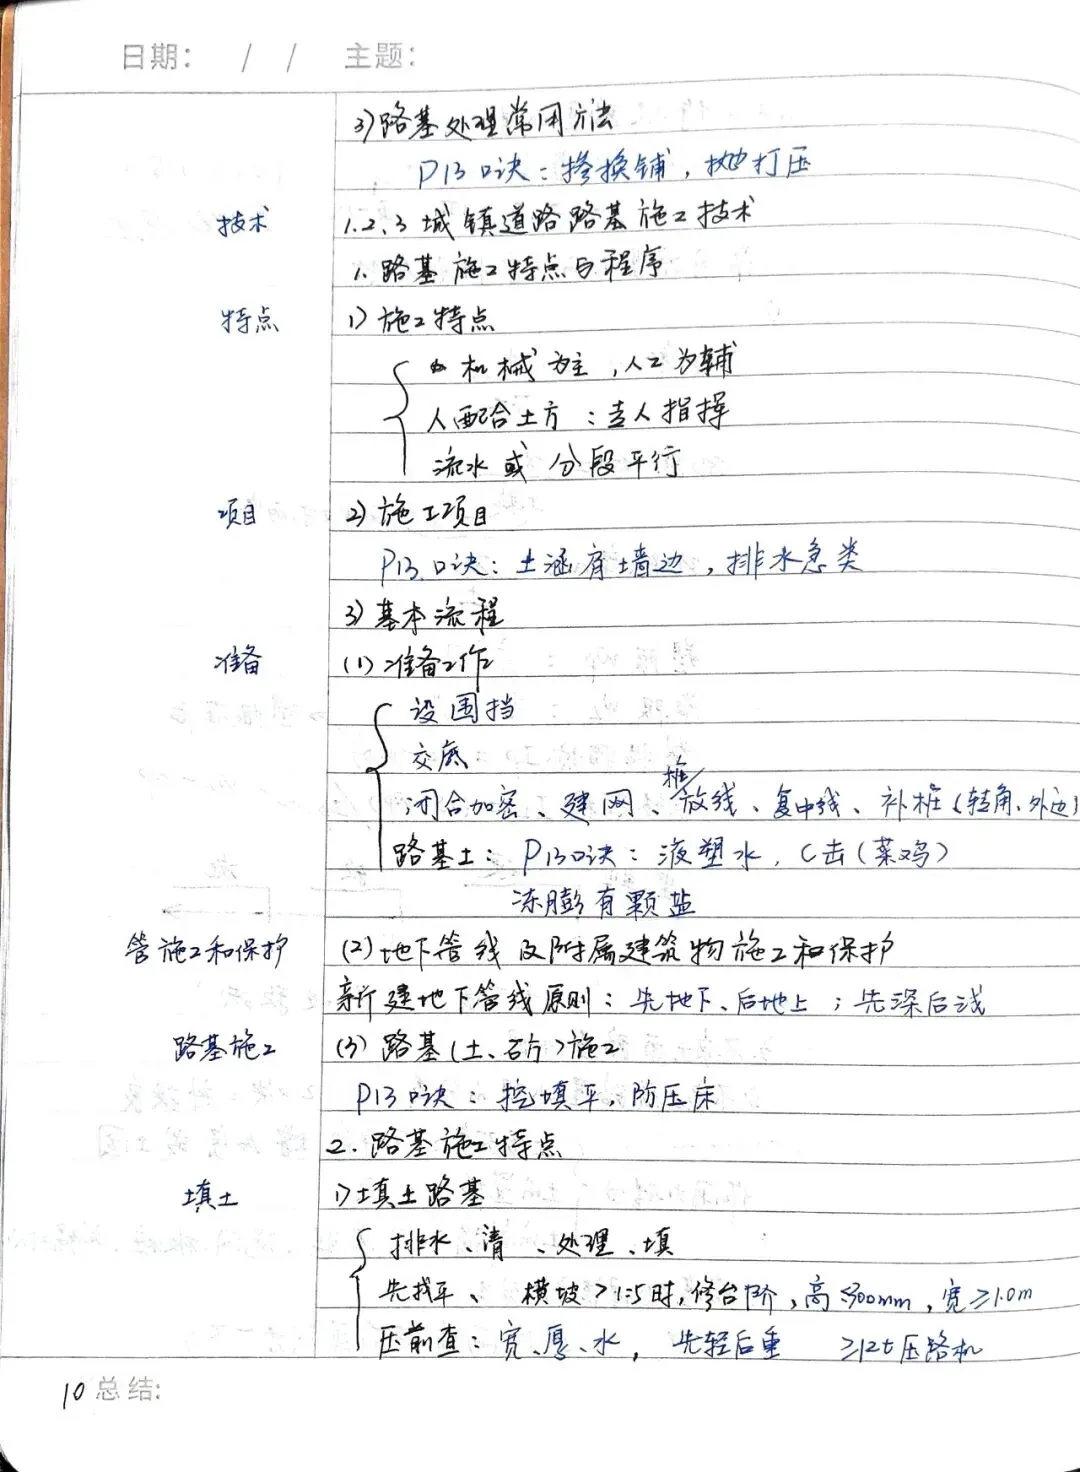 日期： / / 主题：
3)路基处理常用方法
P13口诀：搀换铺，抛打压
技术 1.2.3 城镇道路路基施工技术
1.路基施工特点与程序
特点 1)施工特点
机械为主，人工为辅
人配合土方：专人指挥
流水或分段平行
项目 2)施工项目
P13口诀：土涵肩墙边，排水急类
3)基本流程
准备 (1)准备工作
设围挡
交底
桩
闭合加密、建网、放线、复中线、补桩(转角、外边)
路基土：P13口诀：液塑水，C击(菜鸡)
冻膨有颗盐
管施工和保护 (2)地下管线及附属建筑物施工和保护
新建地下管线原则：先地下、后地上；先深后浅
路基施工 (3)路基(土、石方)施工
P13口诀：挖填平，防压床
2.路基施工特点
填土 1)填土路基
排水、清、处理、填
先找平、横坡>1:5时，修台阶，高≤300mm，宽≥1.0m
压前查：宽、厚、水，先轻后重 ≥12t压路机
10 总结: